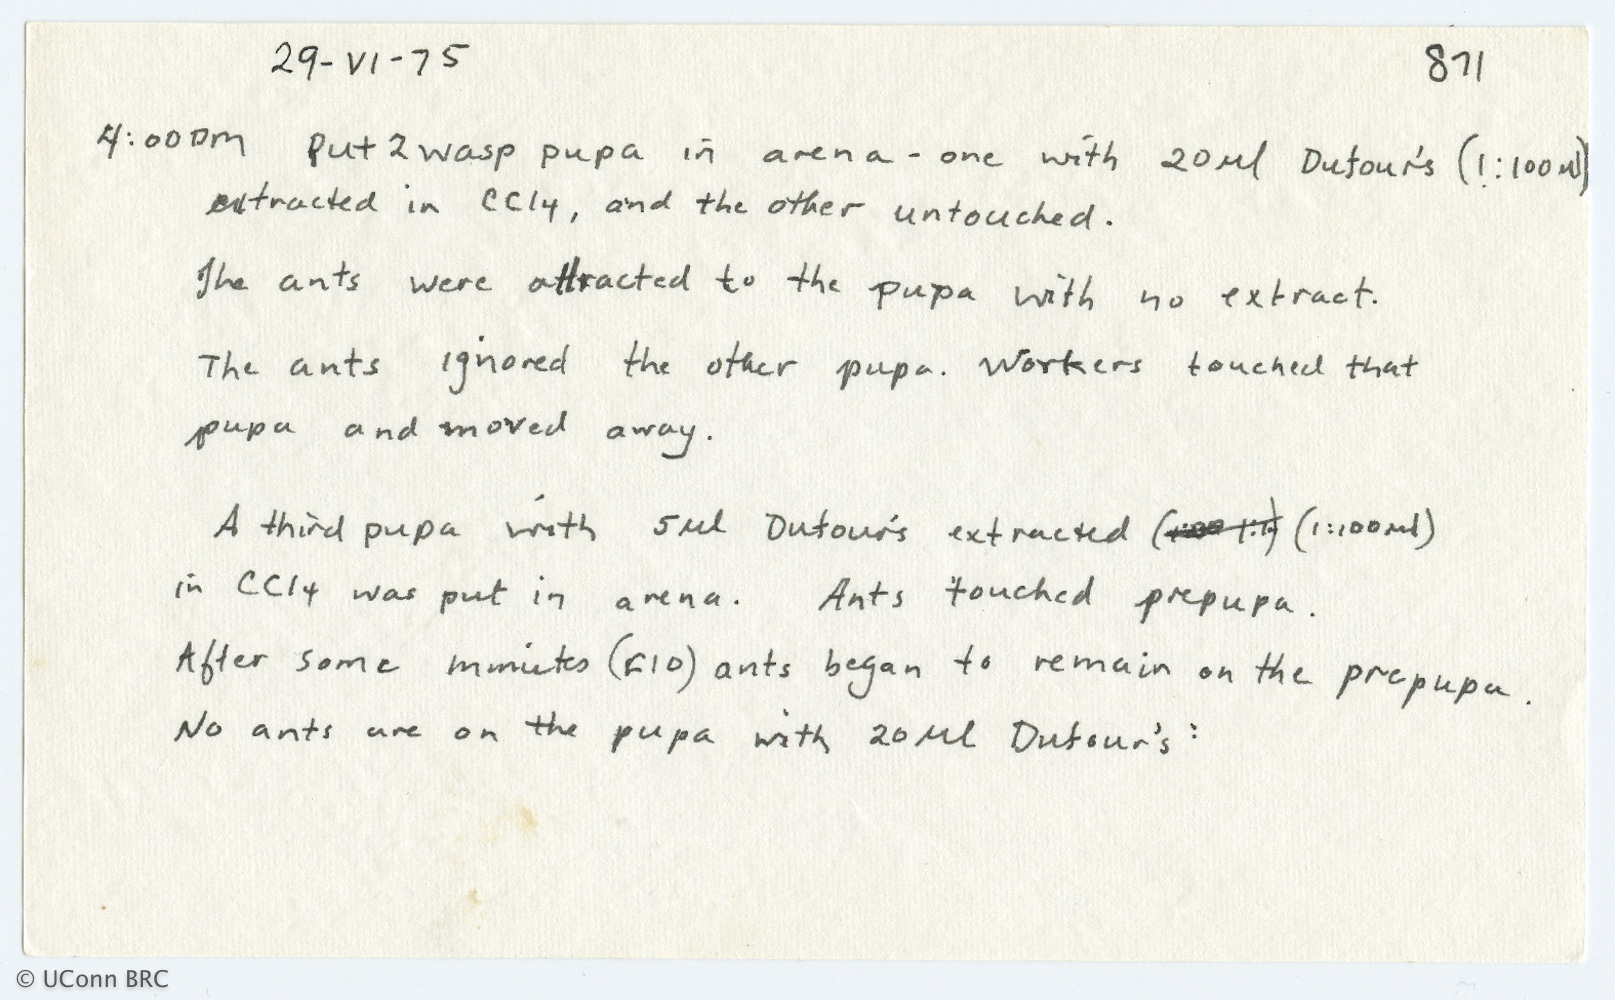 29-VI-75 871
4:00pm Put 2 wasp pupa in arena - one with 20 µl Dufour's (1:100 µl)
extracted in CCl4, and the other untouched.
The ants were attracted to the pupa with no extract.
The ants ignored the other pupa. Workers touched that
pupa and moved away.
A third pupa with 5 µl Dufour's extracted (1:100 µl)
in CCl4 was put in arena. Ants touched prepupa.
After some minutes (£10) ants began to remain on the prepupa.
No ants are on the pupa with 20 µl Dufour's:
© UConn BRC